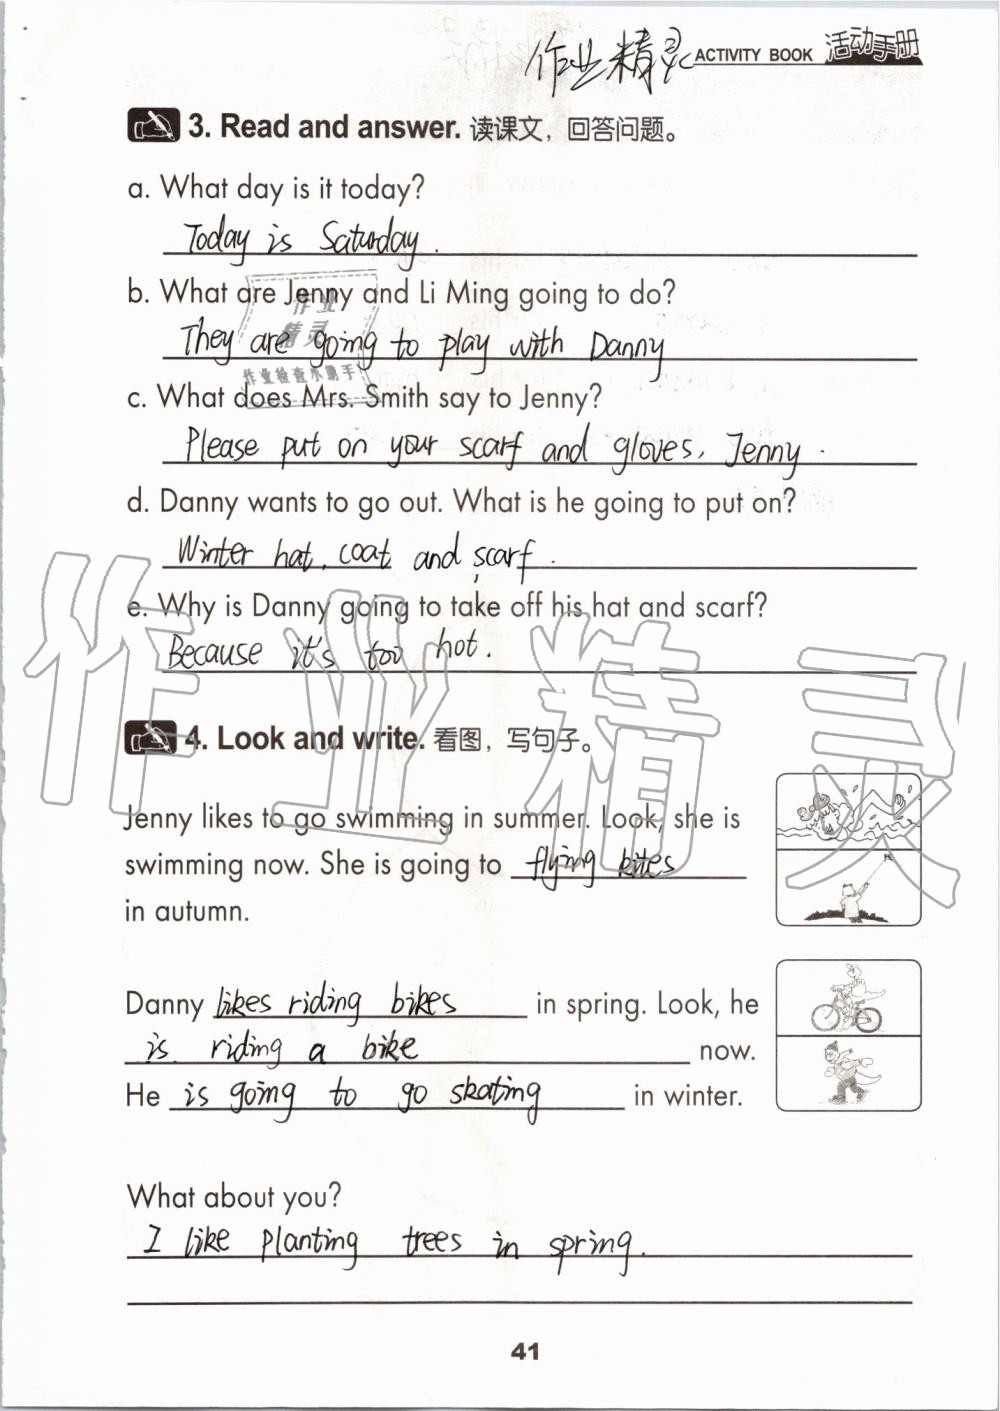 作业精灵
ACTIVITY BOOK 活动手册
3. Read and answer. 读课文，回答问题。
a. What day is it today?
Today is Saturday.
b. What are Jenny and Li Ming going to do?
作业
精灵
They are going to play with Danny
作业检查小助手
c. What does Mrs. Smith say to Jenny?
Please put on your scarf and gloves, Jenny.
d. Danny wants to go out. What is he going to put on?
Winter hat, coat and scarf.
e. Why is Danny going to take off his hat and scarf?
Because it's too hot.
作业精灵
4. Look and write. 看图，写句子。
Jenny likes to go swimming in summer. Look, she is
swimming now. She is going to flying kites
in autumn.
Danny likes riding bikes in spring. Look, he
is riding a bike now.
He is going to go skating in winter.
What about you?
I like planting trees in spring.
41